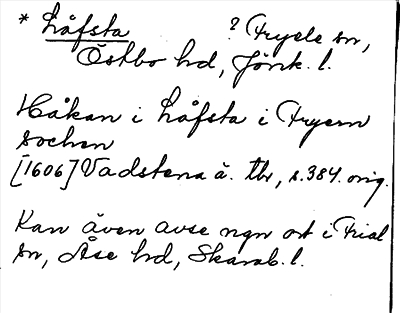 * Låfsta ? Fryele sn,
Östbo hd, Jönk. l.
Håkan i Låfsta i Fryem
sochen
[1606] Vadstena ä. tbr, s. 384. orig.
Kan även avse ngn ort i Friel
sn, Åse hd, Skarab. l.